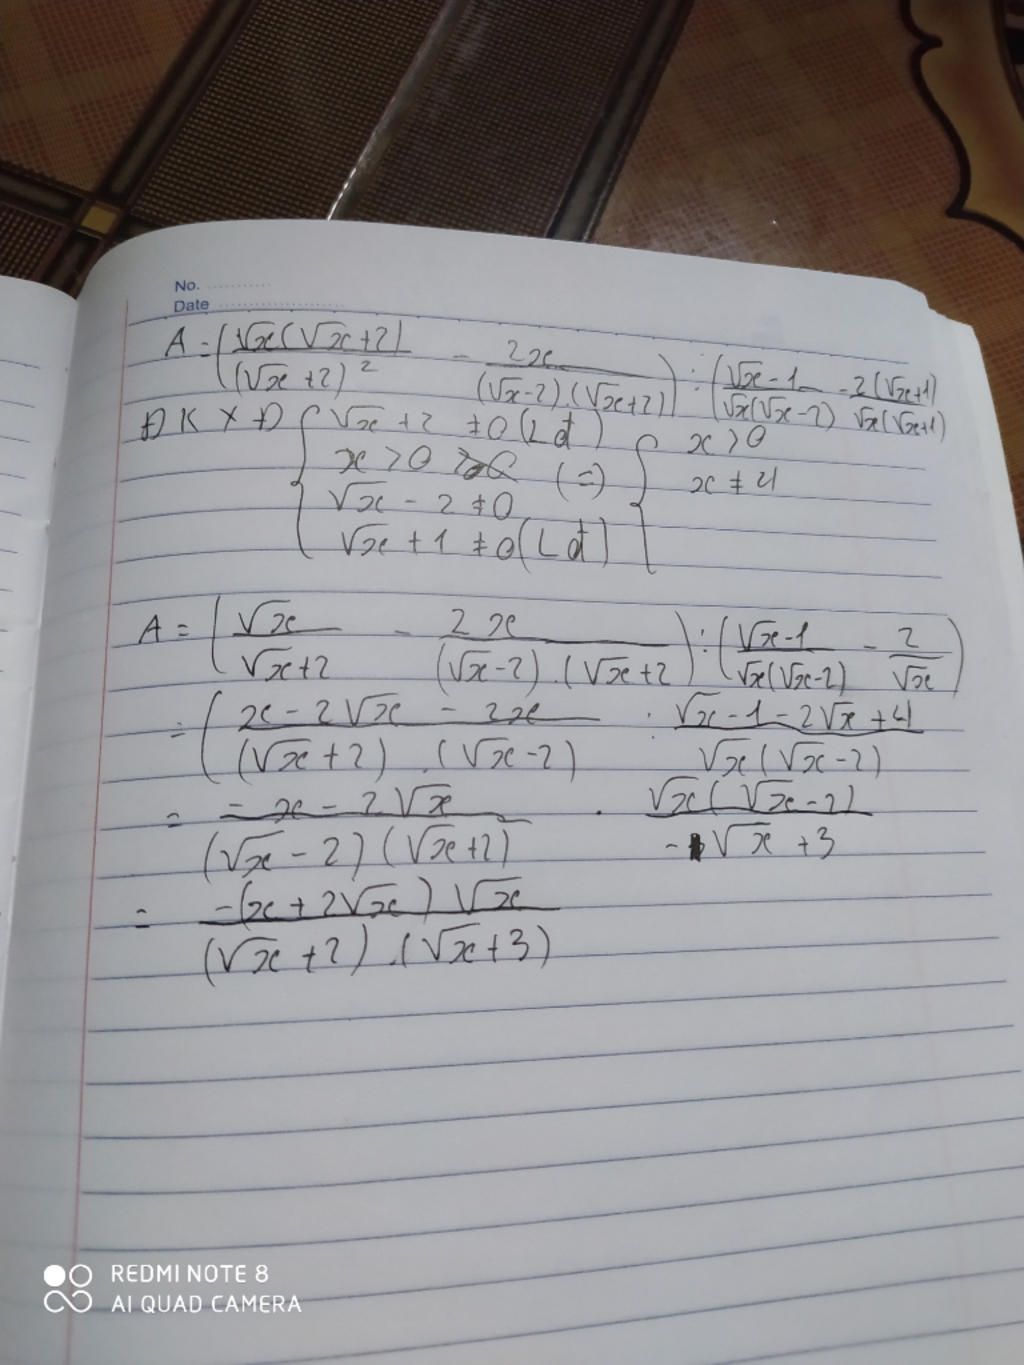 No. ...........
Date .....................
A = ( √x(√x+2) / (√x+2)² - 2x / (√x-2).(√x+2) ) : ( √x-1 / √x(√x-2) - 2(√x+1) / √x(√x+1)
ĐKXĐ { √x + 2 ≠ 0 (Lđ) { x > 0
x > 0 (=) x ≠ 4
√x - 2 ≠ 0
√x + 1 ≠ 0 (Lđ)
A = ( √x / √x+2 - 2x / (√x-2).(√x+2) ) : ( √x-1 / √x(√x-2) - 2 / √x )
= ( x - 2√x - 2x / (√x+2).(√x-2) : √x-1-2√x+4 / √x(√x-2)
= -x - 2√x / (√x-2)(√x+2) . √x(√x-2) / -√x+3
= -(x+2√x)√x / (√x+2).(√x+3)
REDMI NOTE 8
AI QUAD CAMERA